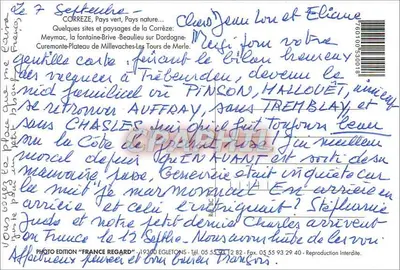 le 7 Septembre -
CORREZE, Pays vert, Pays nature...
Quelques sites et paysages de la Corrèze:
Meymac, la fontaine-Brive -Beaulieu sur Dordogne-
Curemonte-Plateau de Millevaches-Les Tours de Merle.
Chers Jean Lou et Eliane
Merci pour votre
gentille carte, faisant le bilan heureux
des vacances à Trébeurden, devenu le
nid familial où PINSON, HALLOUËT,
se retrouvent AUFFRAY, sans TREMBLAY, et
sans CHASLES mais qu'il fait toujours beau
sur la Côte de
moral depuis qu'EN AVANT est sorti de sa
mauvaise passe, Geneviève était inquiète car
la nuit je marmonnais : En arrière en
arrière et cela l'intriguait ! Stéphanie
Juels et notre petit dernier Charles arrivent
en France le 12 Septbre. Nous avons hâte de les voir.
Affectueuses pensées et bons baisers François.
PHOTO EDITION "FRANCE REGARD" - 19300 EGLETONS - Tél. 05 55 93 12 82 - Fax. 05 55 93 29 40 - Reproduction Interdite.